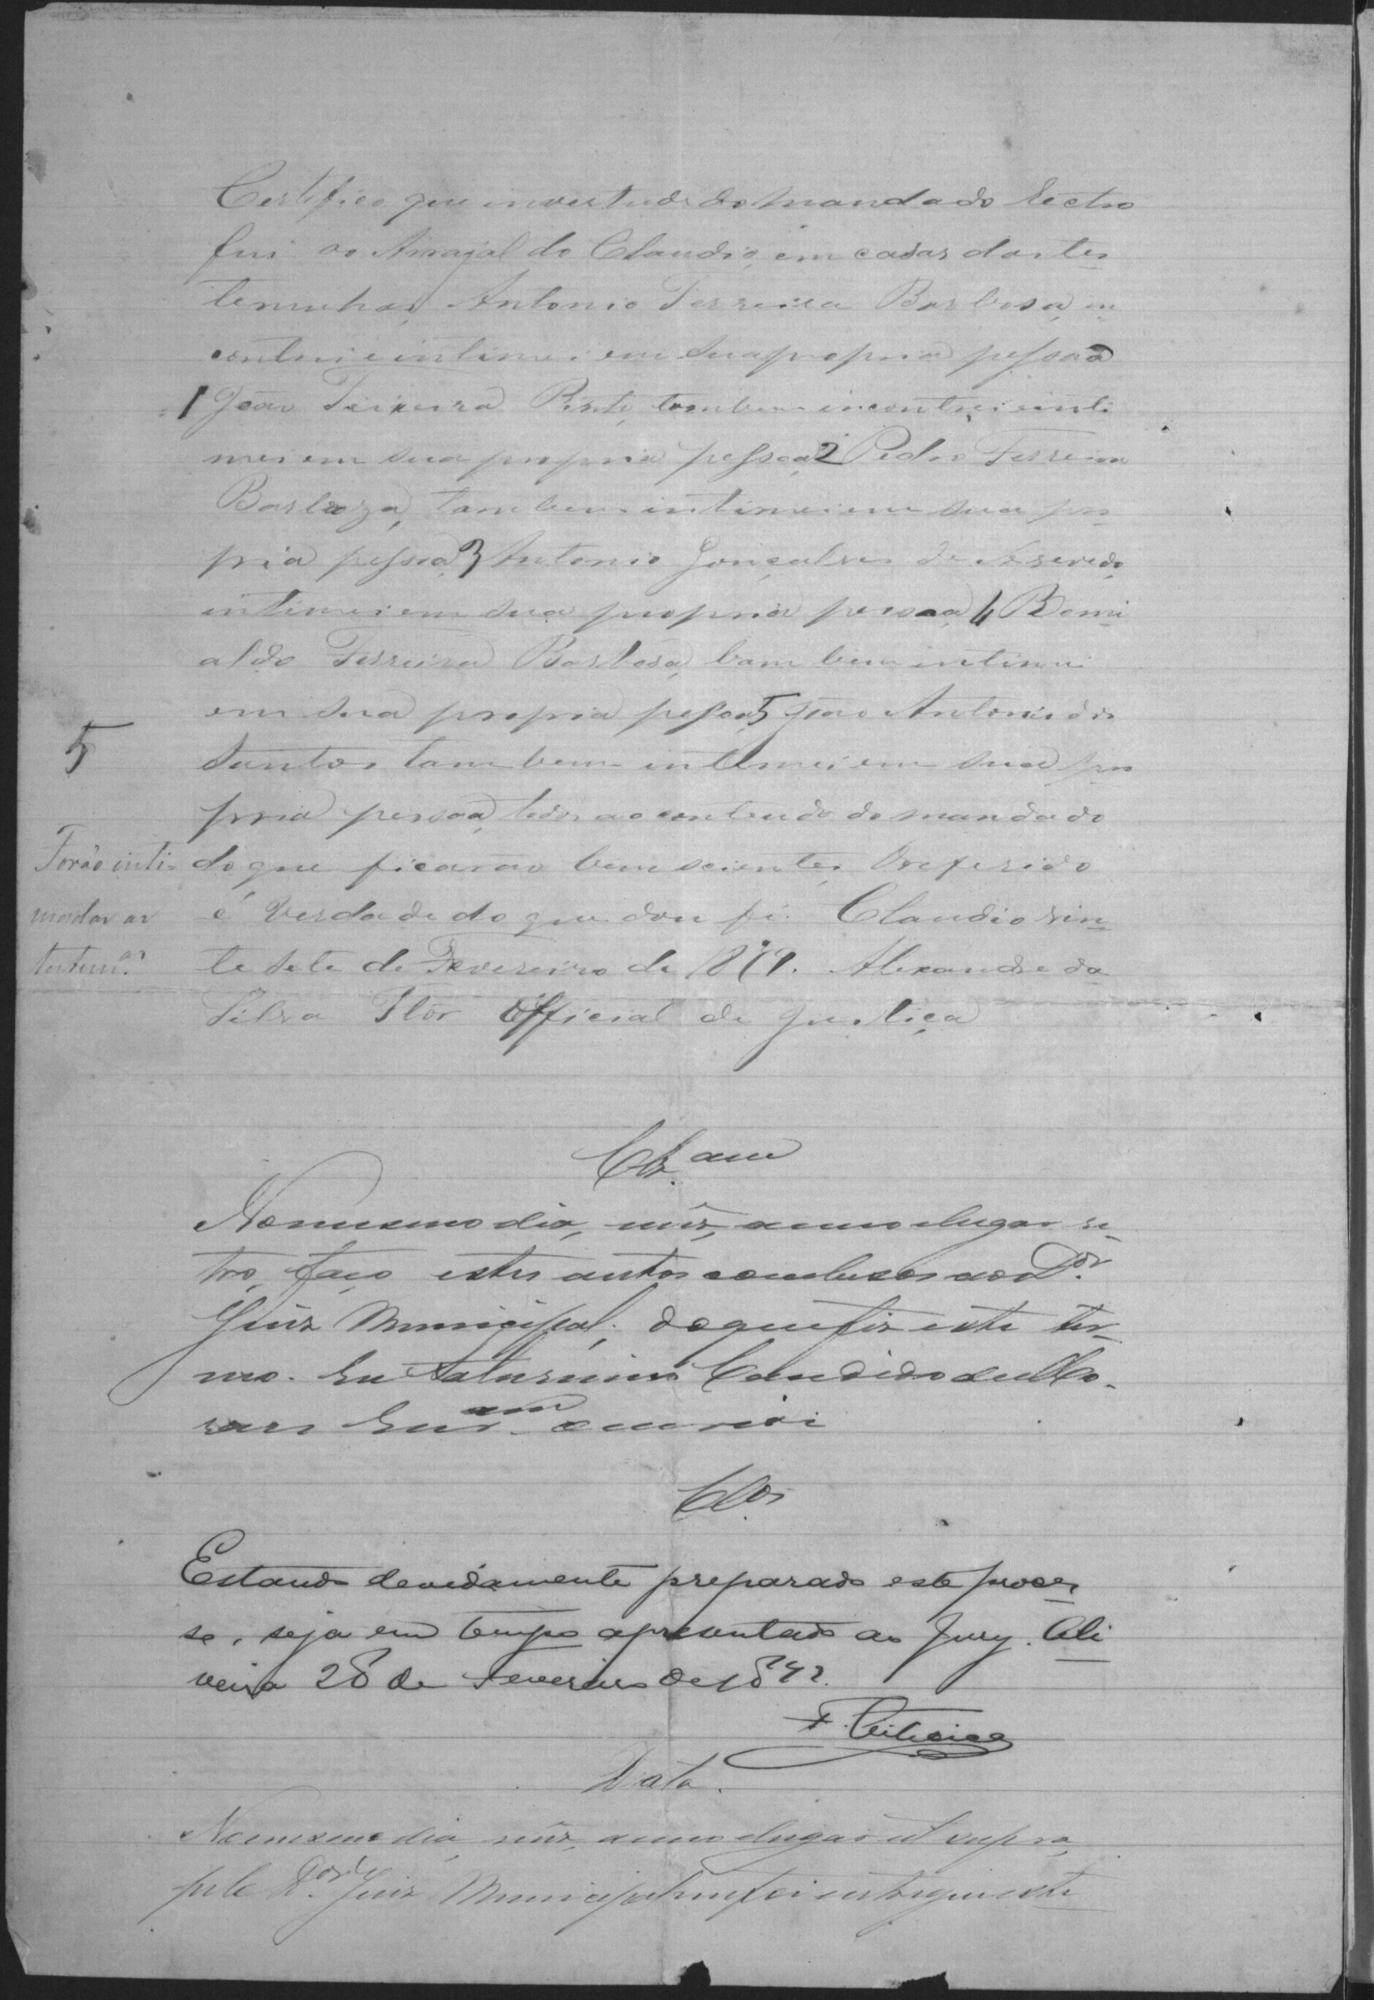 Certifico que invertude do mandado rectro
fui ao Arraial do Claudio, em casas das tes
temunhas, Antonio Ferreira Barbosa, in
contrei e intimei em sua propria pessoa
1 João Teixeira Pinto, tambem incontrei e inti
mei em sua propria pessoa, 2 Pedro Ferreira
Barboza, tambem intimei em sua pro
pria pessoa, 3 Antonio Gonçalves de Azevedo,
intimei em sua propria pessoa, 4 Romu
aldo Ferreira Barbosa, bam bem intimei
em sua propria pessoa, 5 João Antonio dos
Santos, tam bem intimei em sua pro
pria pessoa, todos ao conteudo do mandado
do que ficarão bem scientes, O referido
é verdade do que dou fé. Claudio vin
te sete de Fevereiro de 1879. Alexandre da
Silva Flôr Official de Justiça
5
Forão inti
madas as
testem.as
Clz.am
No mesmo dia, mêz, anno e lugar re
tro, faço estes autos conclusos ao Dor.
Juiz Municipal; do que fiz este ter
mo. Eu Saturnino Candido de Mo
raes Escram escrevi
Clos
Estando devidamente preparado este proces
so, seja em tempo apresentado ao Jury. Oli
veira 28 de Fevereiro de
F. Teixeira
Data.
No mesmo dia, mêz, anno e lugar ut supra,
pelo Dor. Juiz Municipal me foi entregue este